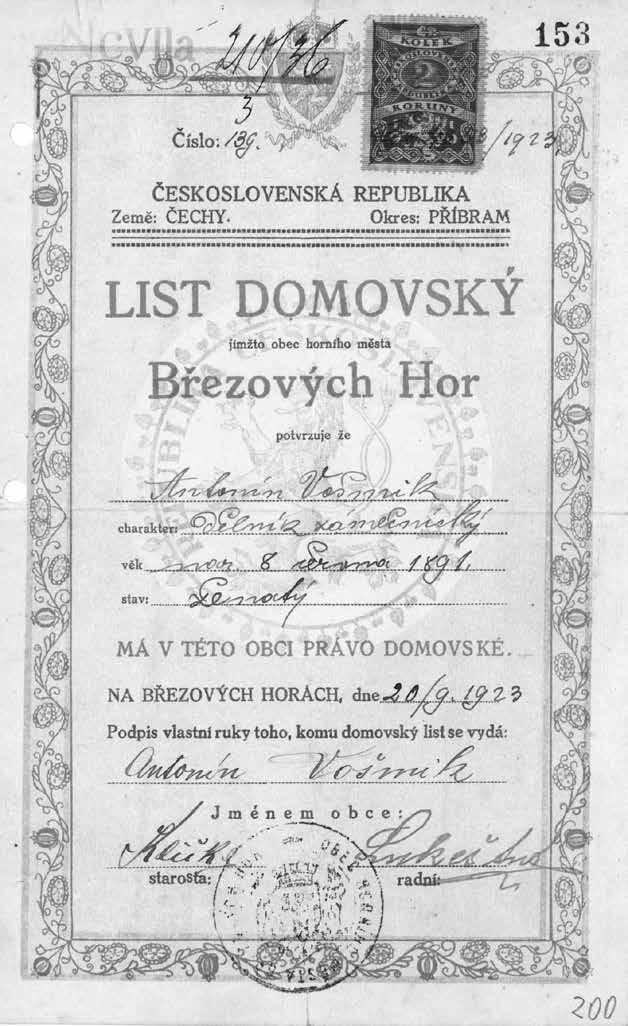 NcVIIa
210/36
3
153
KOLEK
2
KORUNY
Číslo: 139. /1923
ČESKOSLOVENSKÁ REPUBLIKA
Země: ČECHY. Okres: PŘÍBRAM
LIST DOMOVSKÝ
jímžto obec horního města
Březových Hor
potvrzuje že
Antonín Vošmik
charakter: Dělník zámečnický
věk nar. 8 června 1891.
stav: Ženatý
MÁ V TÉTO OBCI PRÁVO DOMOVSKÉ.
NA BŘEZOVÝCH HORÁCH, dne 20/9. 1923
Podpis vlastní ruky toho, komu domovský list se vydá:
Antonín Vošmik
Jménem obce:
starosta: radní:
200